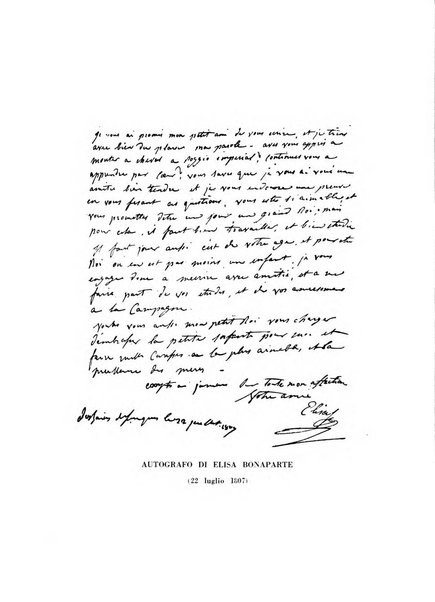 je vous ai promis mon petit ami de vous ecrire, et je tiens
avec bien du plaisir ma parole - avez vous appris a
monter a cheval a Poggio imperial? continuez vous a
apprendre par Cœur? vous savez que je vous ai voué une
amitié bien tendre et je vous en donne une preuve
en vous fesant ces questions, vous etes si aimable, et
vous promettez d'etre un jour un grand Roi; mais
pour cela, il faut bien travailler, et bien etudier
il faut jouer aussi c'est de votre age, et pour etre
Roi on en est pas moins un enfant, je vous
engage donc a m'ecrire avec amitié, et a me
faire part de vos etudes, et de vos amusemens
a la Campagne.
voulez vous aussi mon petit Roi vous charger
d'embrasser la petite infante pour moi et
faire mille Complimens a la plus aimable, et la
meilleure des meres -
comptez a jamais sur toute mon affection
Votre amie
Elisa
des bains de Lucques le 22 juillet 1807
AUTOGRAFO DI ELISA BONAPARTE
(22 luglio 1807)